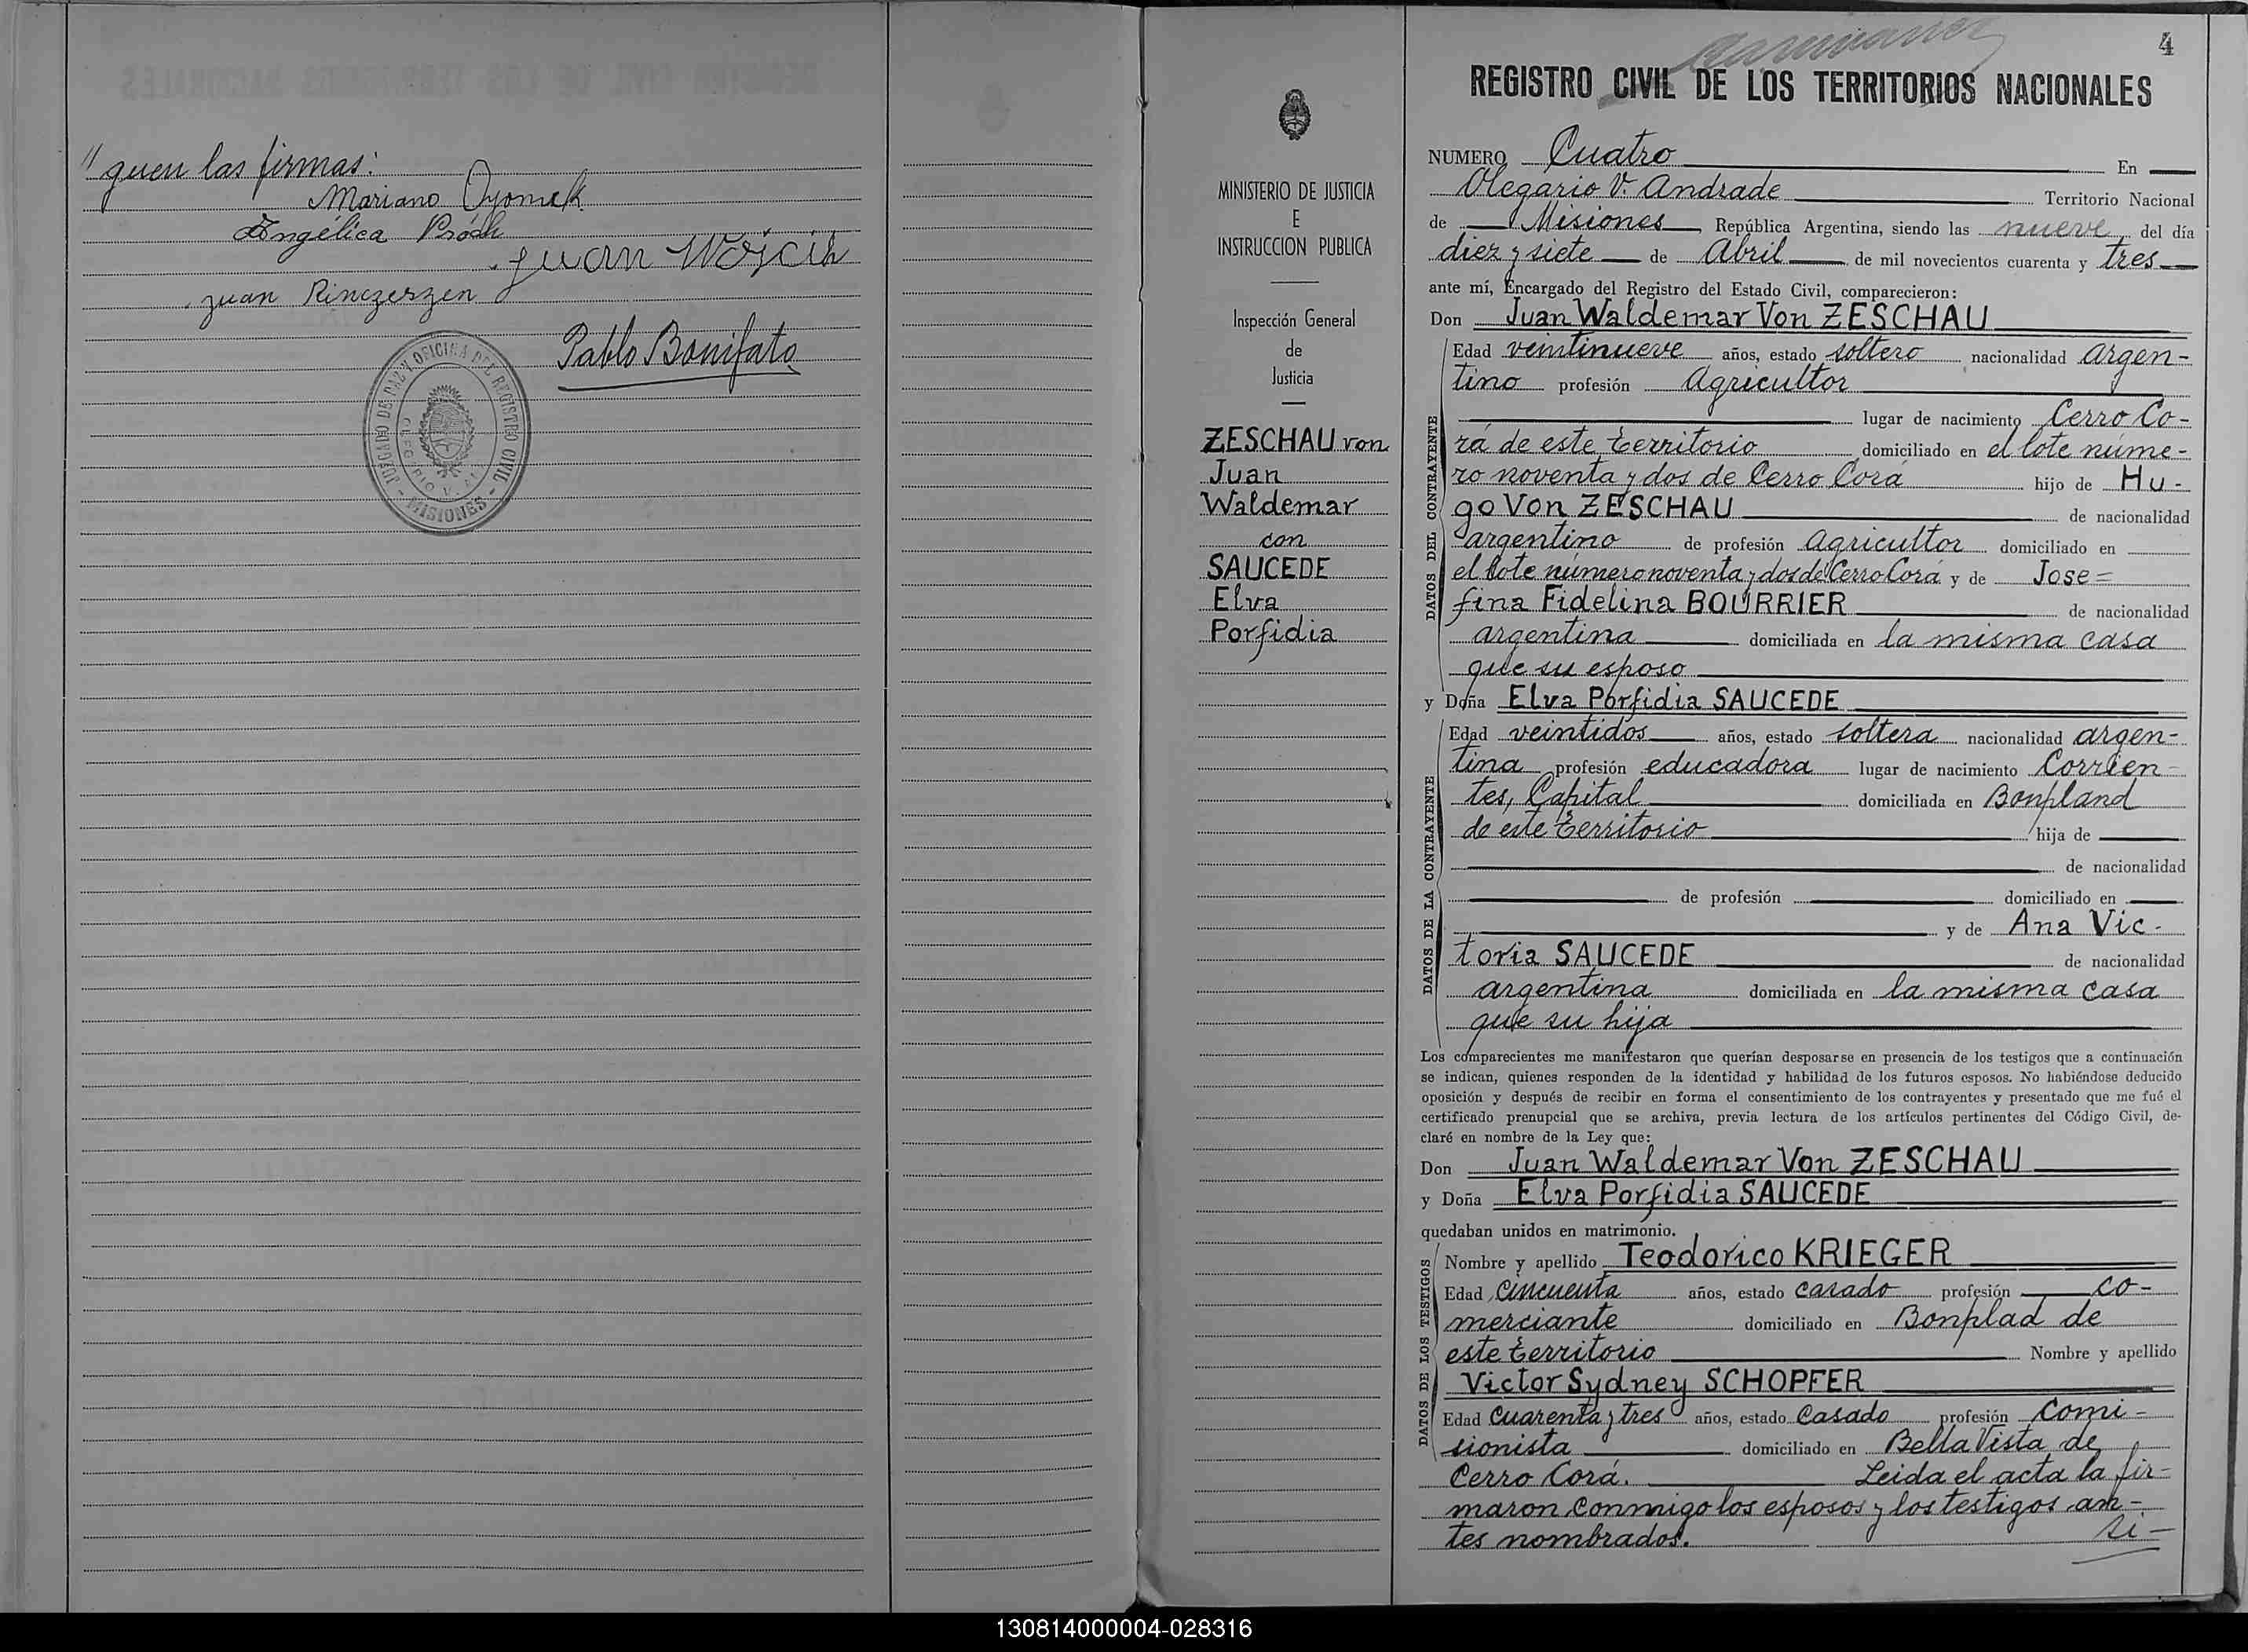 " guen las firmas:
Mariano Oyomek
Angélica Próch
Juan Wójcik
Juan Rinczerzen
Pablo Bonifato
JUZGADO DE PAZ Y OFICINA DEL REGISTRO CIVIL - MISIONES -
4
REGISTRO CIVIL DE LOS TERRITORIOS NACIONALES
MINISTERIO DE JUSTICIA
E
INSTRUCCION PUBLICA
Inspección General
de
Justicia
ZESCHAU von
Juan
Waldemar
con
SAUCEDE
Elva
Porfidia
NUMERO Cuatro En
Olegario V. Andrade Territorio Nacional
de Misiones, República Argentina, siendo las nueve del día
diez y siete de Abril de mil novecientos cuarenta y tres
ante mí, Encargado del Registro del Estado Civil, comparecieron:
Don Juan Waldemar Von ZESCHAU
DATOS DEL CONTRAYENTE
Edad veintinueve años, estado soltero nacionalidad argen-
tino profesión Agricultor
lugar de nacimiento Cerro Co-
rá de este territorio domiciliado en el lote núme-
ro noventa y dos de Cerro Corá hijo de Hu-
go Von ZESCHAU de nacionalidad
argentino de profesión Agricultor domiciliado en
el lote número noventa y dos de Cerro Corá y de Jose=
fina Fidelina BOURRIER de nacionalidad
argentina domiciliada en la misma casa
que su esposo
y Doña Elva Porfidia SAUCEDE
DATOS DE LA CONTRAYENTE
Edad veintidos años, estado soltera nacionalidad argen-
tina profesión educadora lugar de nacimiento Corrien-
tes, Capital domiciliada en Bonpland
de este territorio hija de
de nacionalidad
de profesión domiciliado en
y de Ana Vic-
toria SAUCEDE de nacionalidad
argentina domiciliada en la misma casa
que su hija
Los comparecientes me manifestaron que querían desposarse en presencia de los testigos que a continuación
se indican, quienes responden de la identidad y habilidad de los futuros esposos. No habiéndose deducido
oposición y después de recibir en forma el consentimiento de los contrayentes y presentado que me fué el
certificado prenupcial que se archiva, previa lectura de los artículos pertinentes del Código Civil, de-
claré en nombre de la Ley que:
Don Juan Waldemar Von ZESCHAU
y Doña Elva Porfidia SAUCEDE
quedaban unidos en matrimonio.
DATOS DE LOS TESTIGOS
Nombre y apellido Teodorico KRIEGER
Edad cincuenta años, estado casado profesión co-
merciante domiciliado en Bonplad de
este territorio Nombre y apellido
Victor Sydney SCHOPFER
Edad cuarenta y tres años, estado casado profesión Comi-
sionista domiciliado en Bella Vista de
Cerro Corá. Leida el acta la fir-
maron conmigo los esposos y los testigos an-
tes nombrados. si-
130814000004-028316